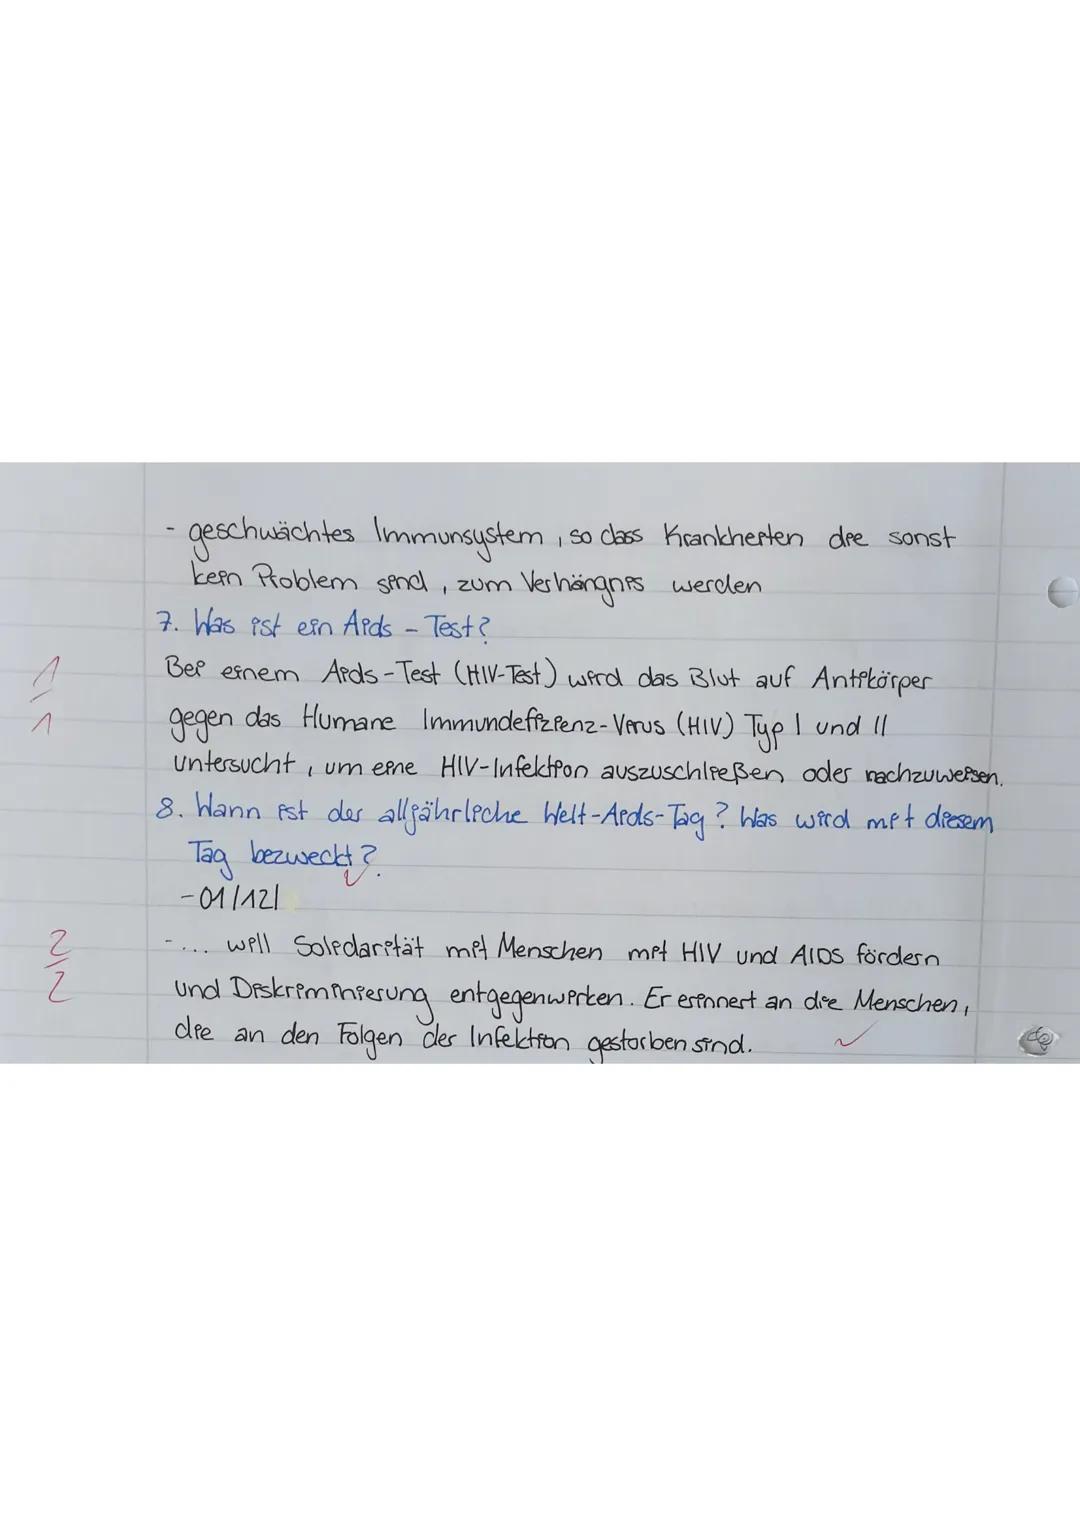 - geschwächtes Immunsystem, so dass Krankheiten die sonst
kein Problem sind, zum Verhängnis werden
7. Was ist ein Aids - Test?
Bei einem Aids - Test (HIV-Test) wird das Blut auf Antikörper
1/1
gegen das Humane Immundefizienz-Virus (HIV) Typ I und II
untersucht, um eine HIV-Infektion auszuschließen oder nachzuweisen.
8. Wann ist der alljährliche Welt-Aids-Tag? Was wird mit diesem
Tag bezweckt?
- 01/12/
2/2
-... will Solidarität mit Menschen mit HIV und AIDS fördern
und Diskriminierung entgegenwirken. Er erinnert an die Menschen,
die an den Folgen der Infektion gestorben sind.